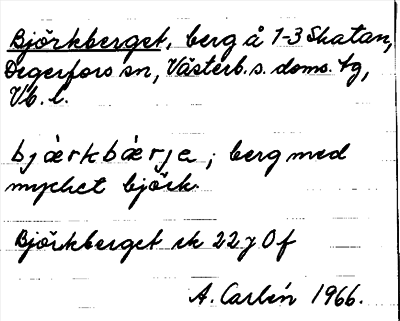 Björkberget, berg å 1-3 Skatan,
Degerfors sn, Västerb. s. doms. tg,
Vb. l.
bjärkbärje; berg med
mycket björk.
Björkberget rk 22 J 0 f
A. Carlén 1966.